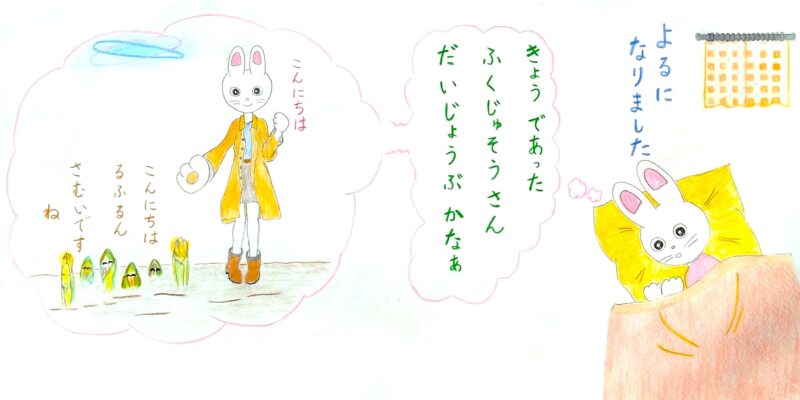 よるに
なりました
きょうであった
ふくじゅそうさん
だいじょうぶかなぁ
こんにちは
こんにちは
るふるん
さむいです
ね